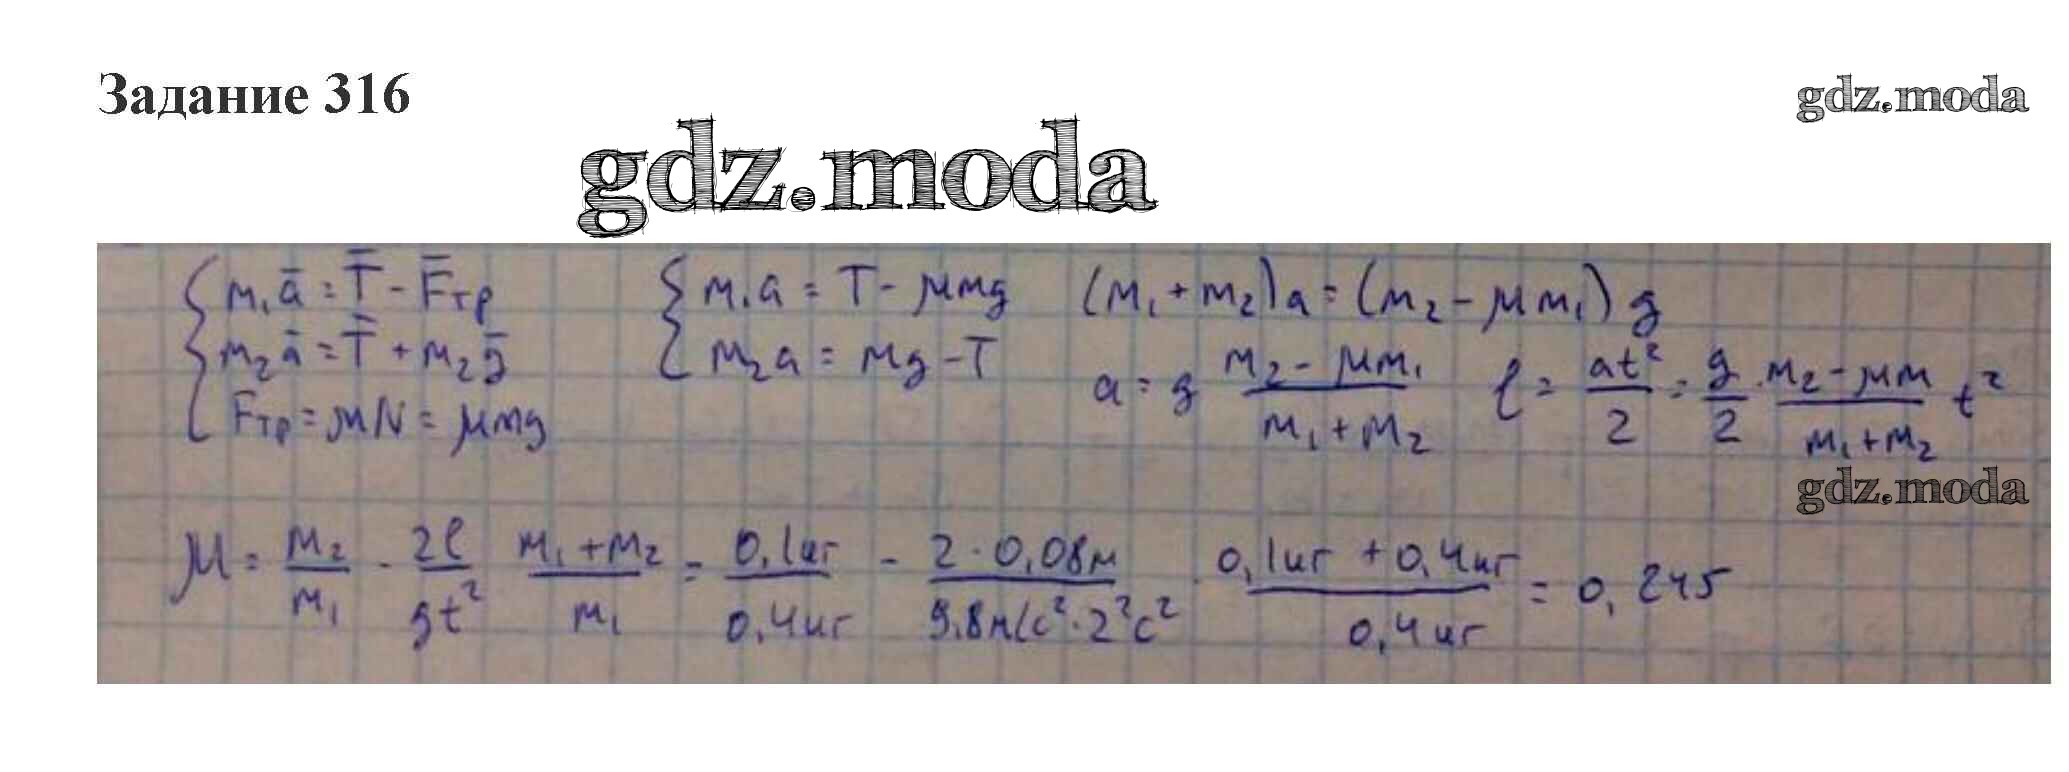 Задание 316
gdz.moda
gdz.moda
m₁ā = T̄ - F̄тр
m₂ā = T̄ + m₂ḡ
Fтр = μN = μmg
m₁a = T - μmg
m₂a = mg - T
(m₁ + m₂)a = (m₂ - μm₁)g
a = g (m₂ - μm₁)/(m₁ + m₂)
l = at²/2 = g/2 · (m₂ - μm)/(m₁ + m₂) t²
gdz.moda
μ = m₂/m₁ - 2l/gt² (m₁ + m₂)/m₁ = 0,1кг/0,4кг - 2·0,08м/9.8м/с²·2²с² · (0,1кг + 0,4кг)/0,4кг = 0,245